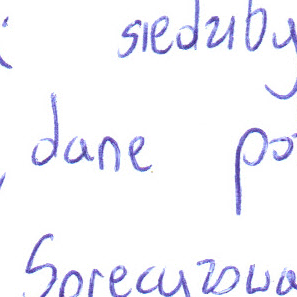 siedziby
dane po
Sprecyzowa